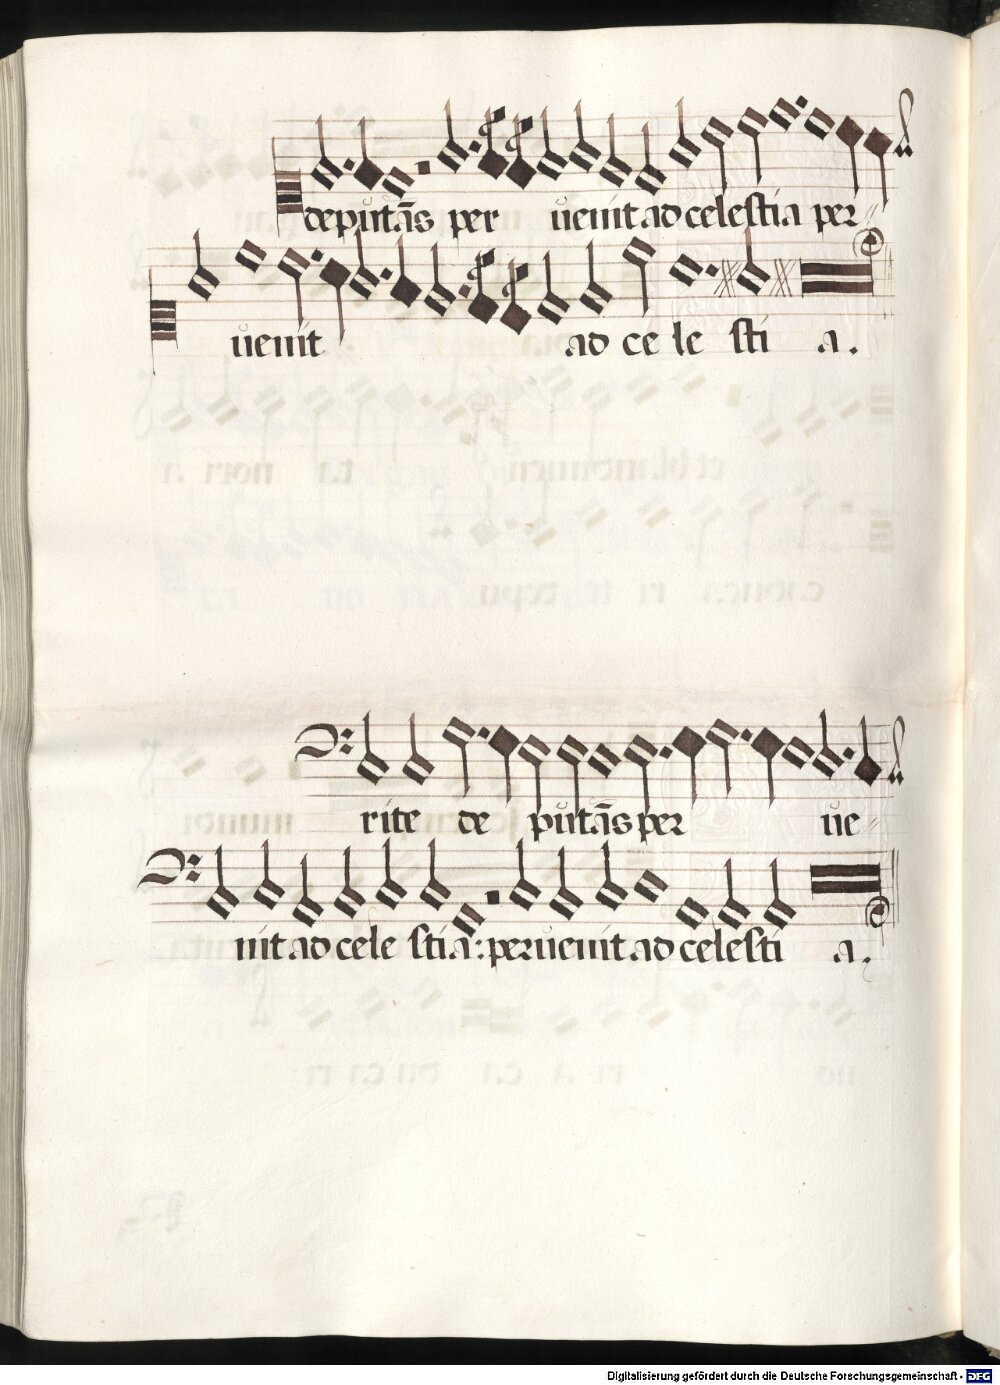 deputās per uenit ad celestia per
uenit ad ce le sti a.
rite de putās per ue
nit ad cele stia: per uenit ad celesti a.
Digitalisierung gefördert durch die Deutsche Forschungsgemeinschaft - DFG